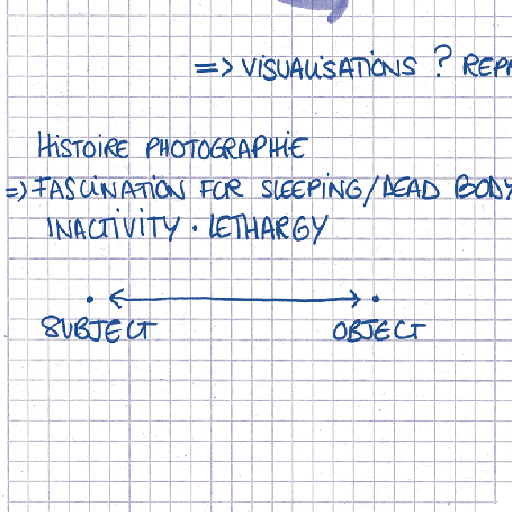 => VISUALISATIONS ? REPR
HISTOIRE PHOTOGRAPHIE
=> FASCINATION FOR SLEEPING/DEAD BODY
INACTIVITY · LETHARGY
SUBJECT OBJECT